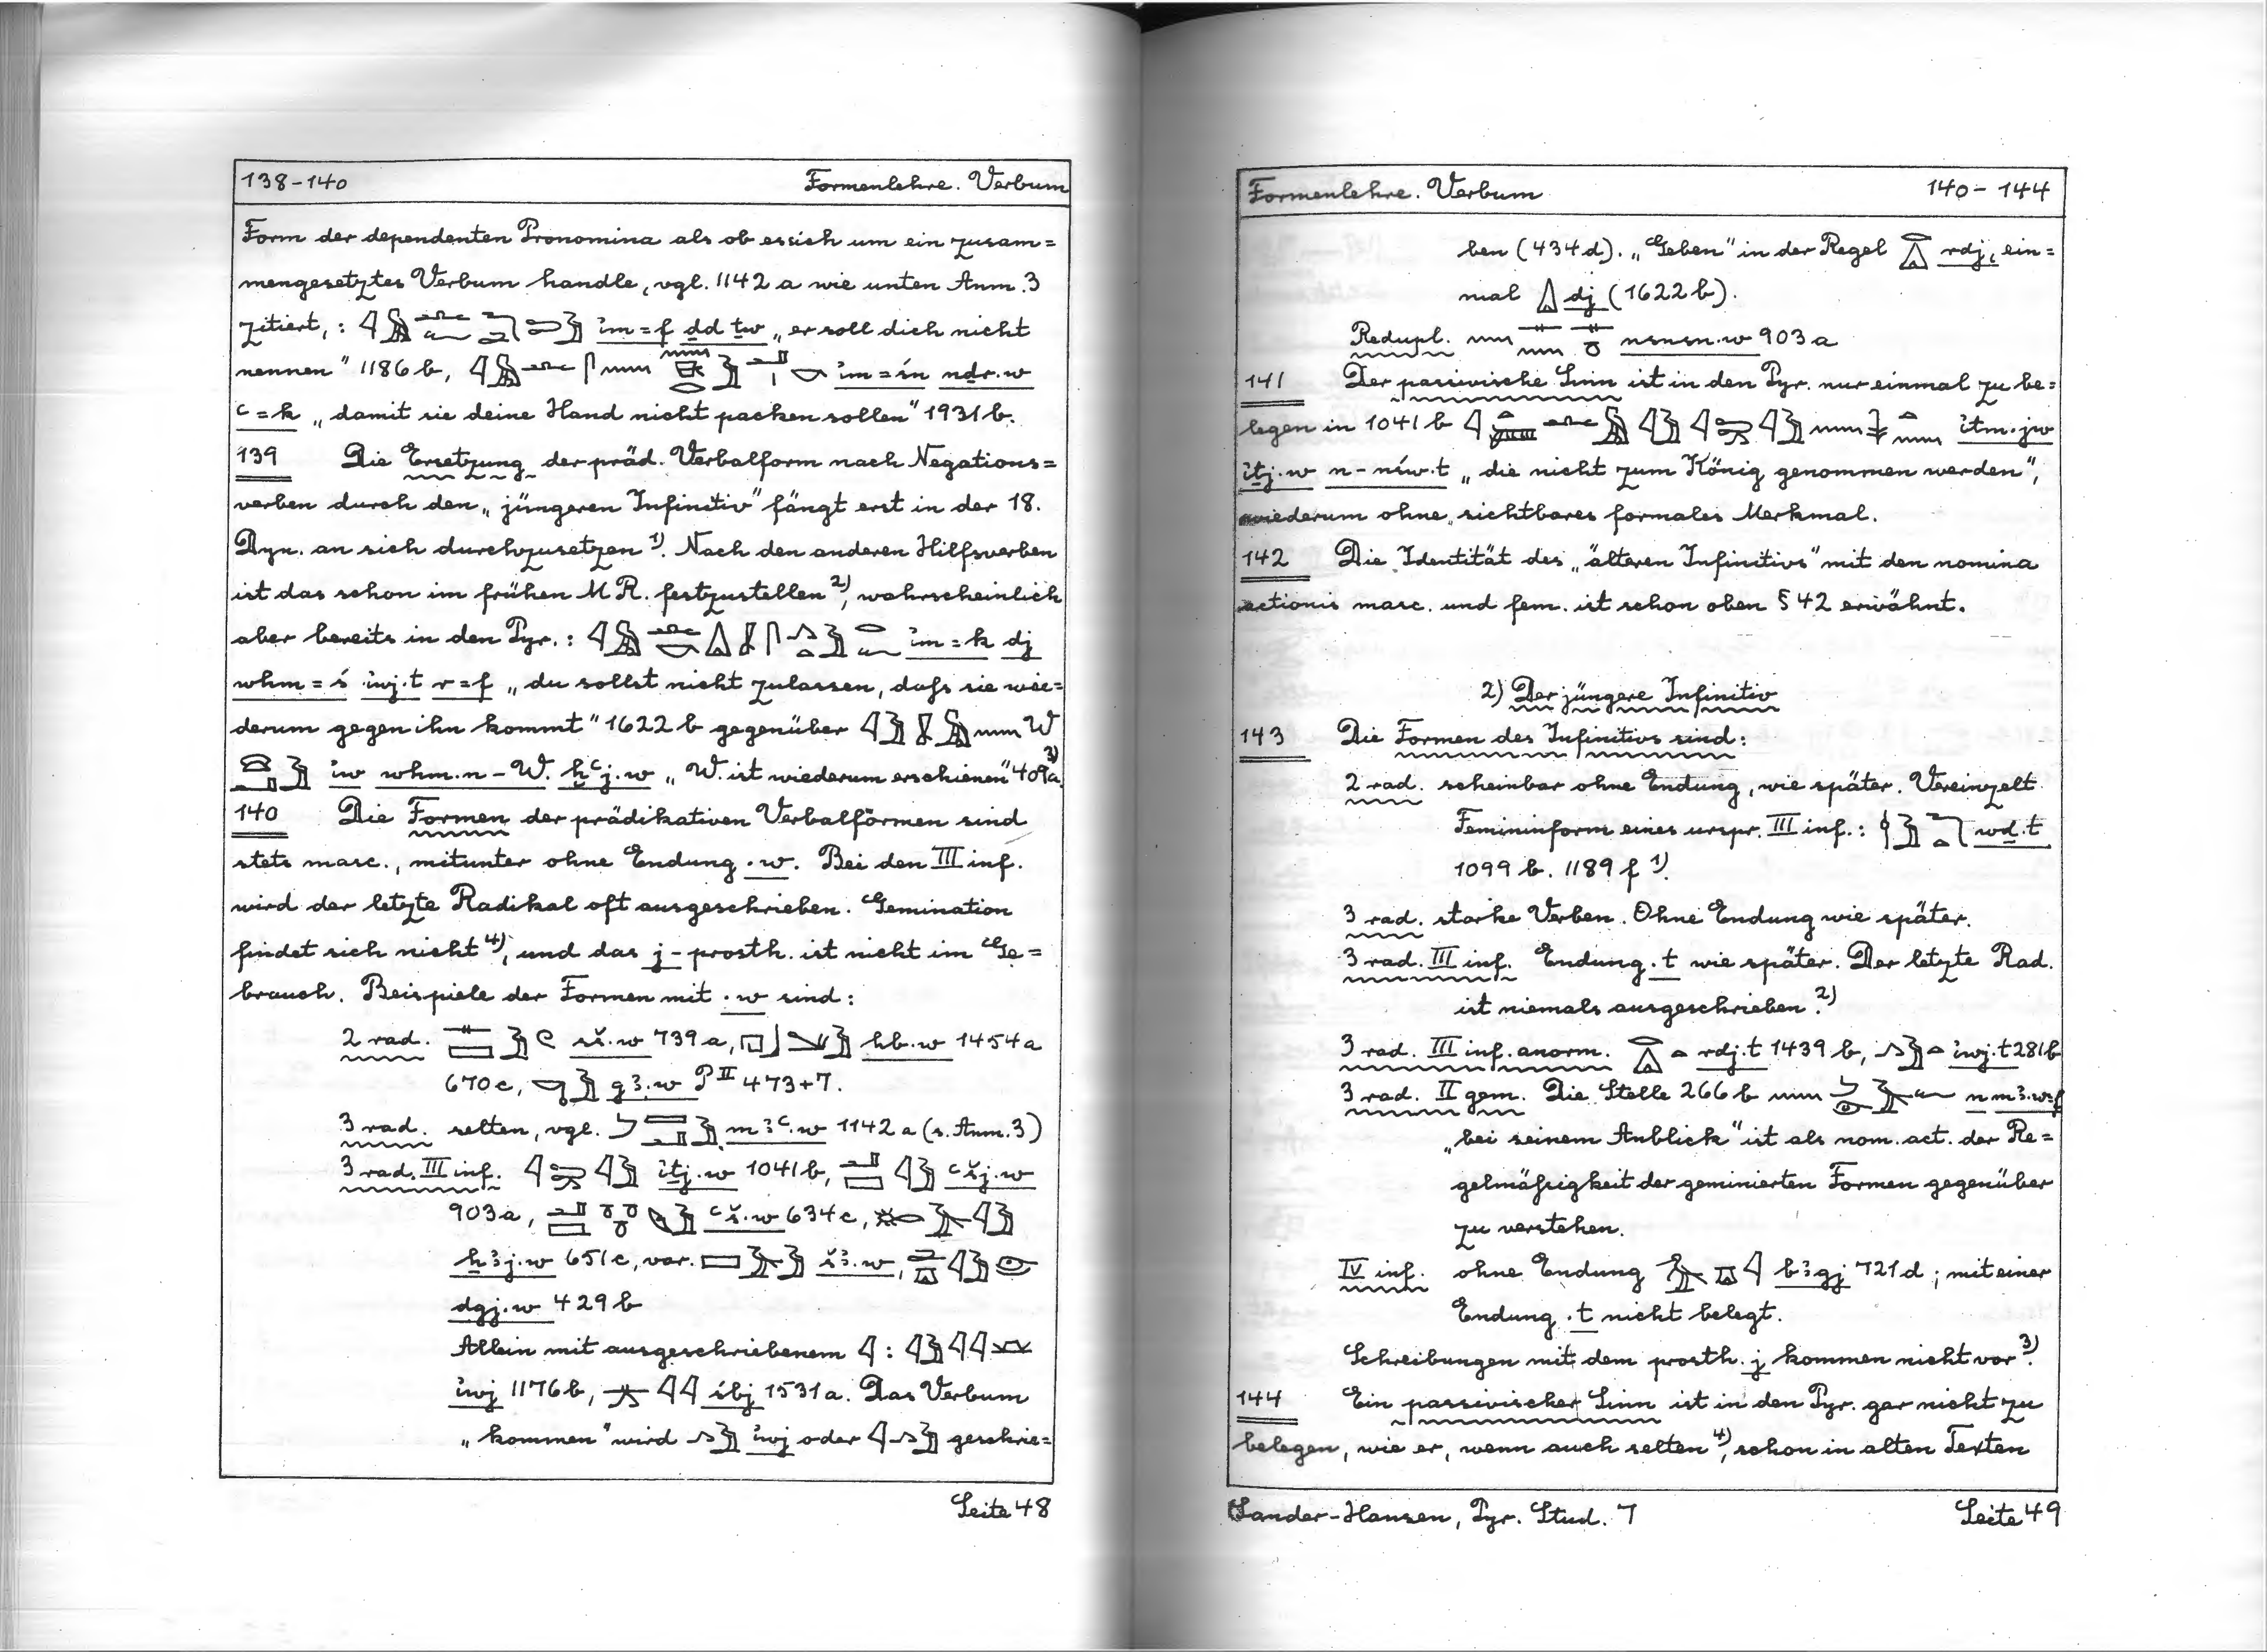 138-140 Formenlehre. Verbum
Form der dependenten Pronomina als ob es sich um ein zusam=
mengesetztes Verbum handle, vgl. 1142 a wie unten Anm. 3
zitiert, : im=f ḏd ṯw „er soll dich nicht
nennen" 1186 b, im=śn nḏr.w
ꜥ=k „damit sie deine Hand nicht packen sollen" 1931 b.
139 Die Ersetzung der präd. Verbalform nach Negations=
verben durch den „jüngeren Infinitiv" fängt erst in der 18.
Dyn. an sich durchzusetzen 1). Nach den anderen Hilfsverben
ist das schon im frühen M.R. festzustellen 2), wahrscheinlich
aber bereits in den Pyr.: im=k dj
whm=ś iwj.t r=f „du sollst nicht zulassen, daß sie wie=
derum gegen ihn kommt" 1622 b gegenüber W
iw whm.n-W. ḫꜥj.w „W. ist wiederum erschienen" 409a 3).
140 Die Formen der prädikativen Verbalformen sind
stets masc., mitunter ohne Endung .w. Bei den III inf.
wird der letzte Radikal oft ausgeschrieben. Gemination
findet sich nicht 4), und das j-prosth. ist nicht im Ge=
brauch. Beispiele der Formen mit .w sind:
2 rad. sš.w 739 a, hb.w 1454 a
670 c, gꜣ.w P II 473+7.
3 rad. selten, vgl. mꜣꜥ.w 1142 a (s. Anm. 3)
3 rad. III inf. iṯj.w 1041 b, ꜥšj.w
903 a, ꜥš.w 634 c,
ẖꜣj.w 651 c, var. šꜣ.w,
dgj.w 429 b
Allein mit ausgeschriebenem :
iwj 1176 b, śbj 1531 a. Das Verbum
„kommen" wird iwj oder geschrie=
Seite 48
Formenlehre. Verbum 140-144
ben (434 d). „Geben" in der Regel rdj, ein=
mal dj (1622 b).
Redupl. nsnsn.w 903 a
141 Der passivische Sinn ist in den Pyr. nur einmal zu be=
legen in 1041 b itm.jw
iṯj.w n-nśw.t „die nicht zum König genommen werden",
wiederum ohne sichtbares formales Merkmal.
142 Die Identität des „älteren Infinitivs" mit den nomina
actionis masc. und fem. ist schon oben § 42 erwähnt.
2) Der jüngere Infinitiv
143 Die Formen des Infinitivs sind:
2 rad. scheinbar ohne Endung, wie später. Vereinzelt
Femininform eines urspr. III inf.: wḏ.t
1099 b. 1189 f 1).
3 rad. starke Verben. Ohne Endung wie später.
3 rad. III inf. Endung .t wie später. Der letzte Rad.
ist niemals ausgeschrieben. 2)
3 rad. III inf. anorm. rdj.t 1439 b, iwj.t 281 b
3 rad. II gem. Die Stelle 266 b n mꜣ.w=f
„bei seinem Anblick" ist als nom. act. der Re=
gelmäßigkeit der geminierten Formen gegenüber
zu verstehen.
IV inf. ohne Endung bꜣgj 721 d; mit einer
Endung .t nicht belegt.
Schreibungen mit dem prosth. j kommen nicht vor 3).
144 Ein passivischer Sinn ist in den Pyr. gar nicht zu
belegen, wie er, wenn auch selten 4), schon in alten Texten
Sander-Hansen, Pyr. Stud. 7 Seite 49